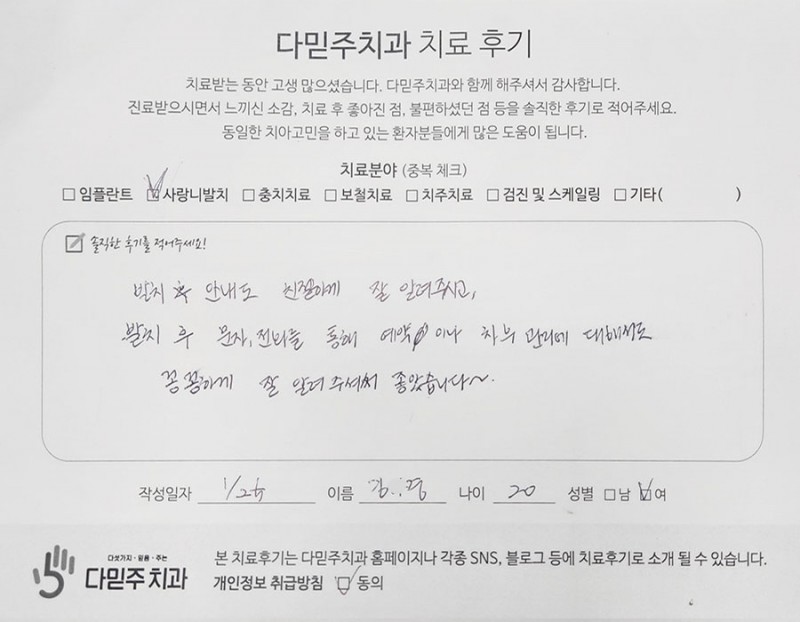 다믿주치과 치료 후기
치료받는 동안 고생 많으셨습니다. 다믿주치과와 함께 해주셔서 감사합니다.
진료받으시면서 느끼신 소감, 치료 후 좋아진 점, 불편하셨던 점 등을 솔직한 후기로 적어주세요.
동일한 치아고민을 하고 있는 환자분들에게 많은 도움이 됩니다.
치료분야 (중복 체크)
□ 임플란트 ☑ 사랑니발치 □ 충치치료 □ 보철치료 □ 치주치료 □ 검진 및 스케일링 □ 기타( )
솔직한 후기를 적어주세요!
발치 후 안내도 친절하게 잘 알려주시고,
발치 후 문자, 전화를 통해 예약 이나 차후 관리에 대해서도
꼼꼼하게 잘 알려 주셔서 좋았습니다~.
작성일자 이름 나이 20 성별 □남 ☑여
다섯가지 · 믿음 · 주는
다믿주치과
본 치료후기는 다믿주치과 홈페이지나 각종 SNS, 블로그 등에 치료후기로 소개 될 수 있습니다.
개인정보 취급방침 ☑ 동의